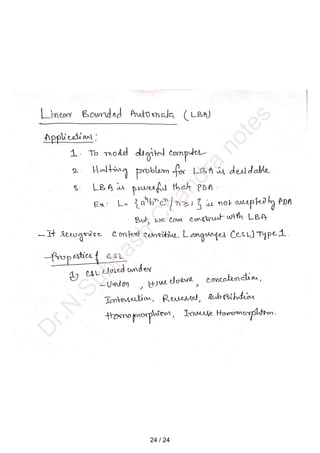 Linear Bounded Automata (LBA)
Applications:
1. To model digital computer
2. Halting problem for LBA is decidable
3. LBA is powerful than PDA.
Ex: L = {aⁿbⁿcⁿ/n≥1} is not accepted by PDA
But, we can construct with LBA
- It recognizes Context sensitive Languages (CSL) Type 1.
- Properties of CSL
1) CSL closed under
- Union, +ive closure, concatenation,
Intersection, Reversal, Substitution
Homomorphism, Inverse Homomorphism.
24 / 24